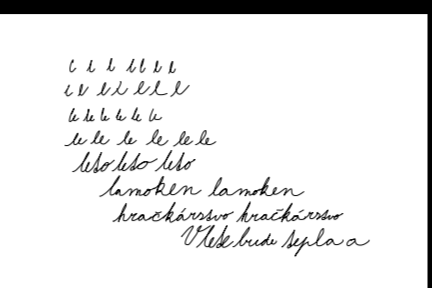 le le le le le le
le le le le le le
leto leto leto
lamoken lamoken
hračkárstvo hračkárstvo
V lete bude tepla a